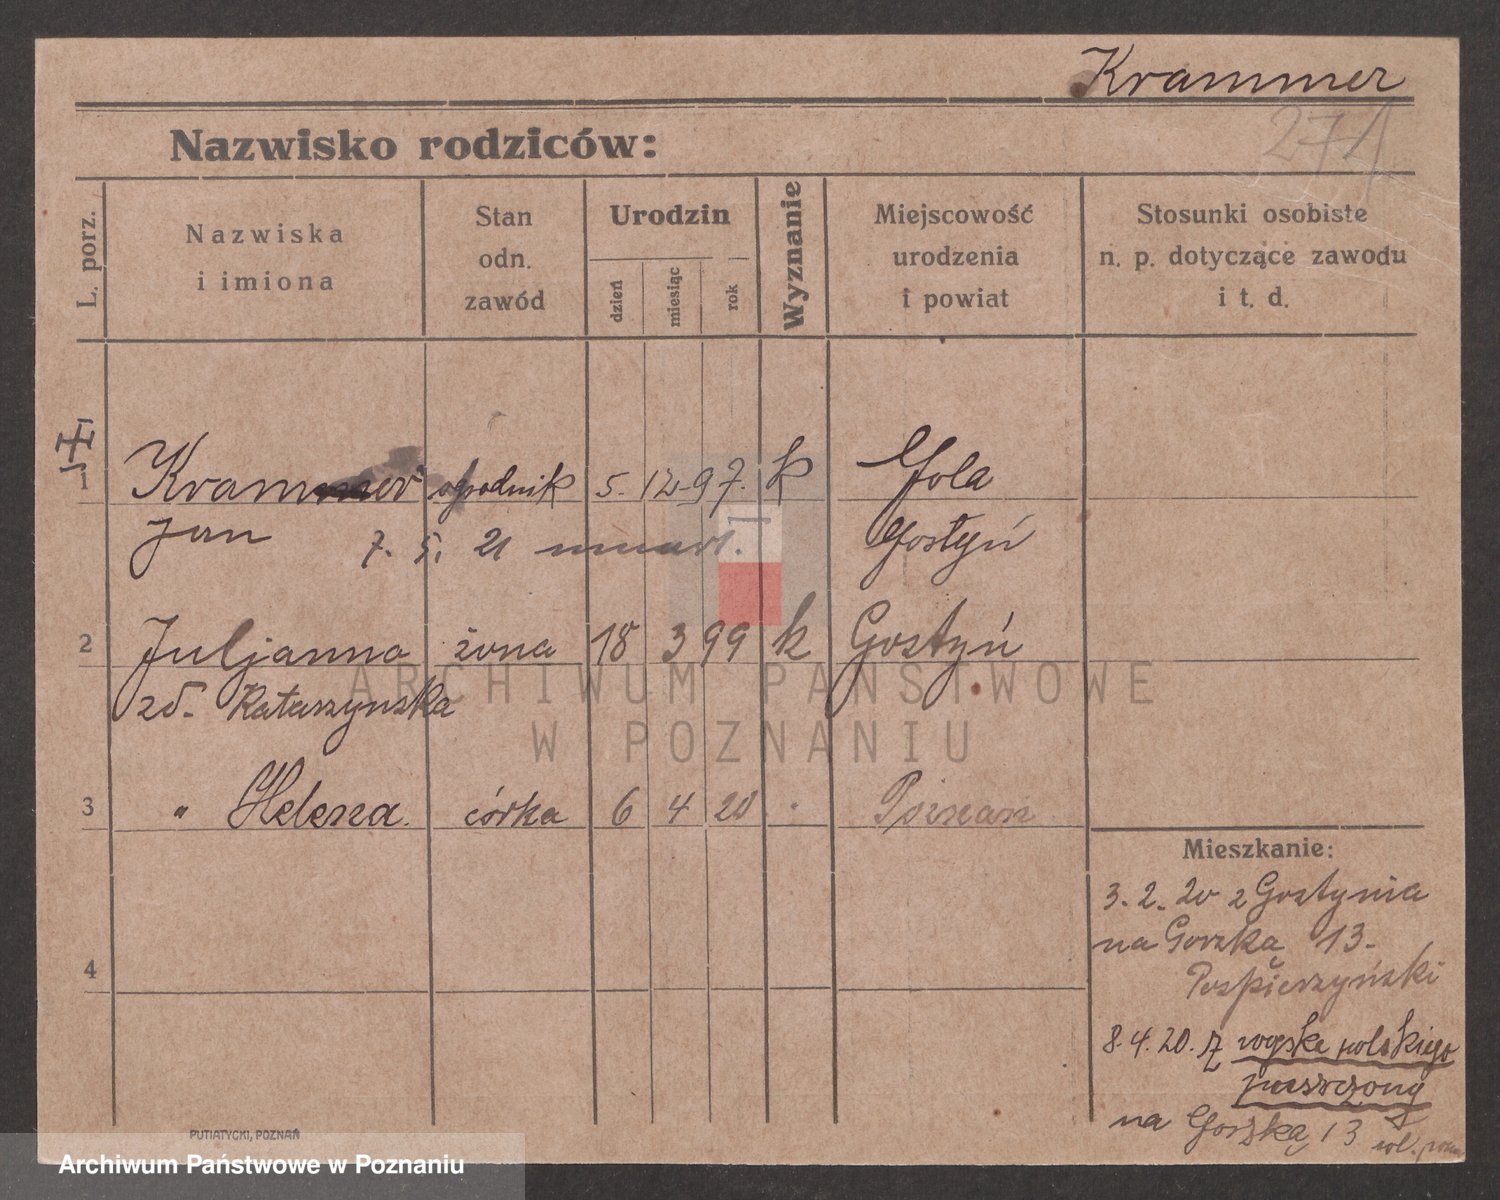 Krammer
271
Nazwisko rodziców:
L. porz.
Nazwiska
i imiona
Stan
odn.
zawód
Urodzin
dzień
miesiąc
rok
Wyznanie
Miejscowość
urodzenia
i powiat
Stosunki osobiste
n. p. dotyczące zawodu
i t. d.
1 Krammer ogrodnik 5. 12. 97. k Gola
Jan 7. 5. 21 umarł. Gostyń
2 Juljanna żona 18 3 99 k Gostyń
zd. Rataszynska
3 " Helena. córka 6 4 20 " Poznań
4
Mieszkanie:
3. 2. 20 z Gostynia
na Gorzką 13.
Pospierzyński
8. 4. 20. Z wojska polskiego
puszczony
na Gorzką 13
PUTIATYCKI, POZNAŃ
ARCHIWUM PAŃSTWOWE
W POZNANIU
Archiwum Państwowe w Poznaniu